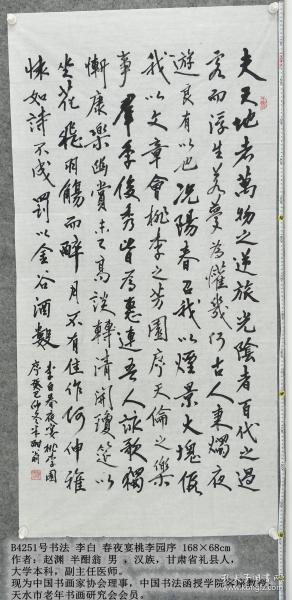 夫天地者萬物之逆旅光陰者百代之過
客而浮生若夢為懽幾何古人秉燭夜
遊良有以也況陽春召我以煙景大塊假
我以文章會桃李之芳園序天倫之樂
事羣季俊秀皆為惠連吾人詠歌獨
慚康樂幽賞未已高談轉清開瓊筵以
坐花飛羽觴而醉月不有佳作何伸雅
懷如詩不成罰以金谷酒數
李白春夜宴桃李園
序癸巳仲冬半酣翁
B4251号书法 李白 春夜宴桃李园序 168×68cm
作者：赵渊 半酣翁 男 ，汉族，甘肃省礼县人，
大学本科，副主任医师。
现为中国书画家协会理事，中国书法函授学院客座教授，
天水市老年书画研究会会员。